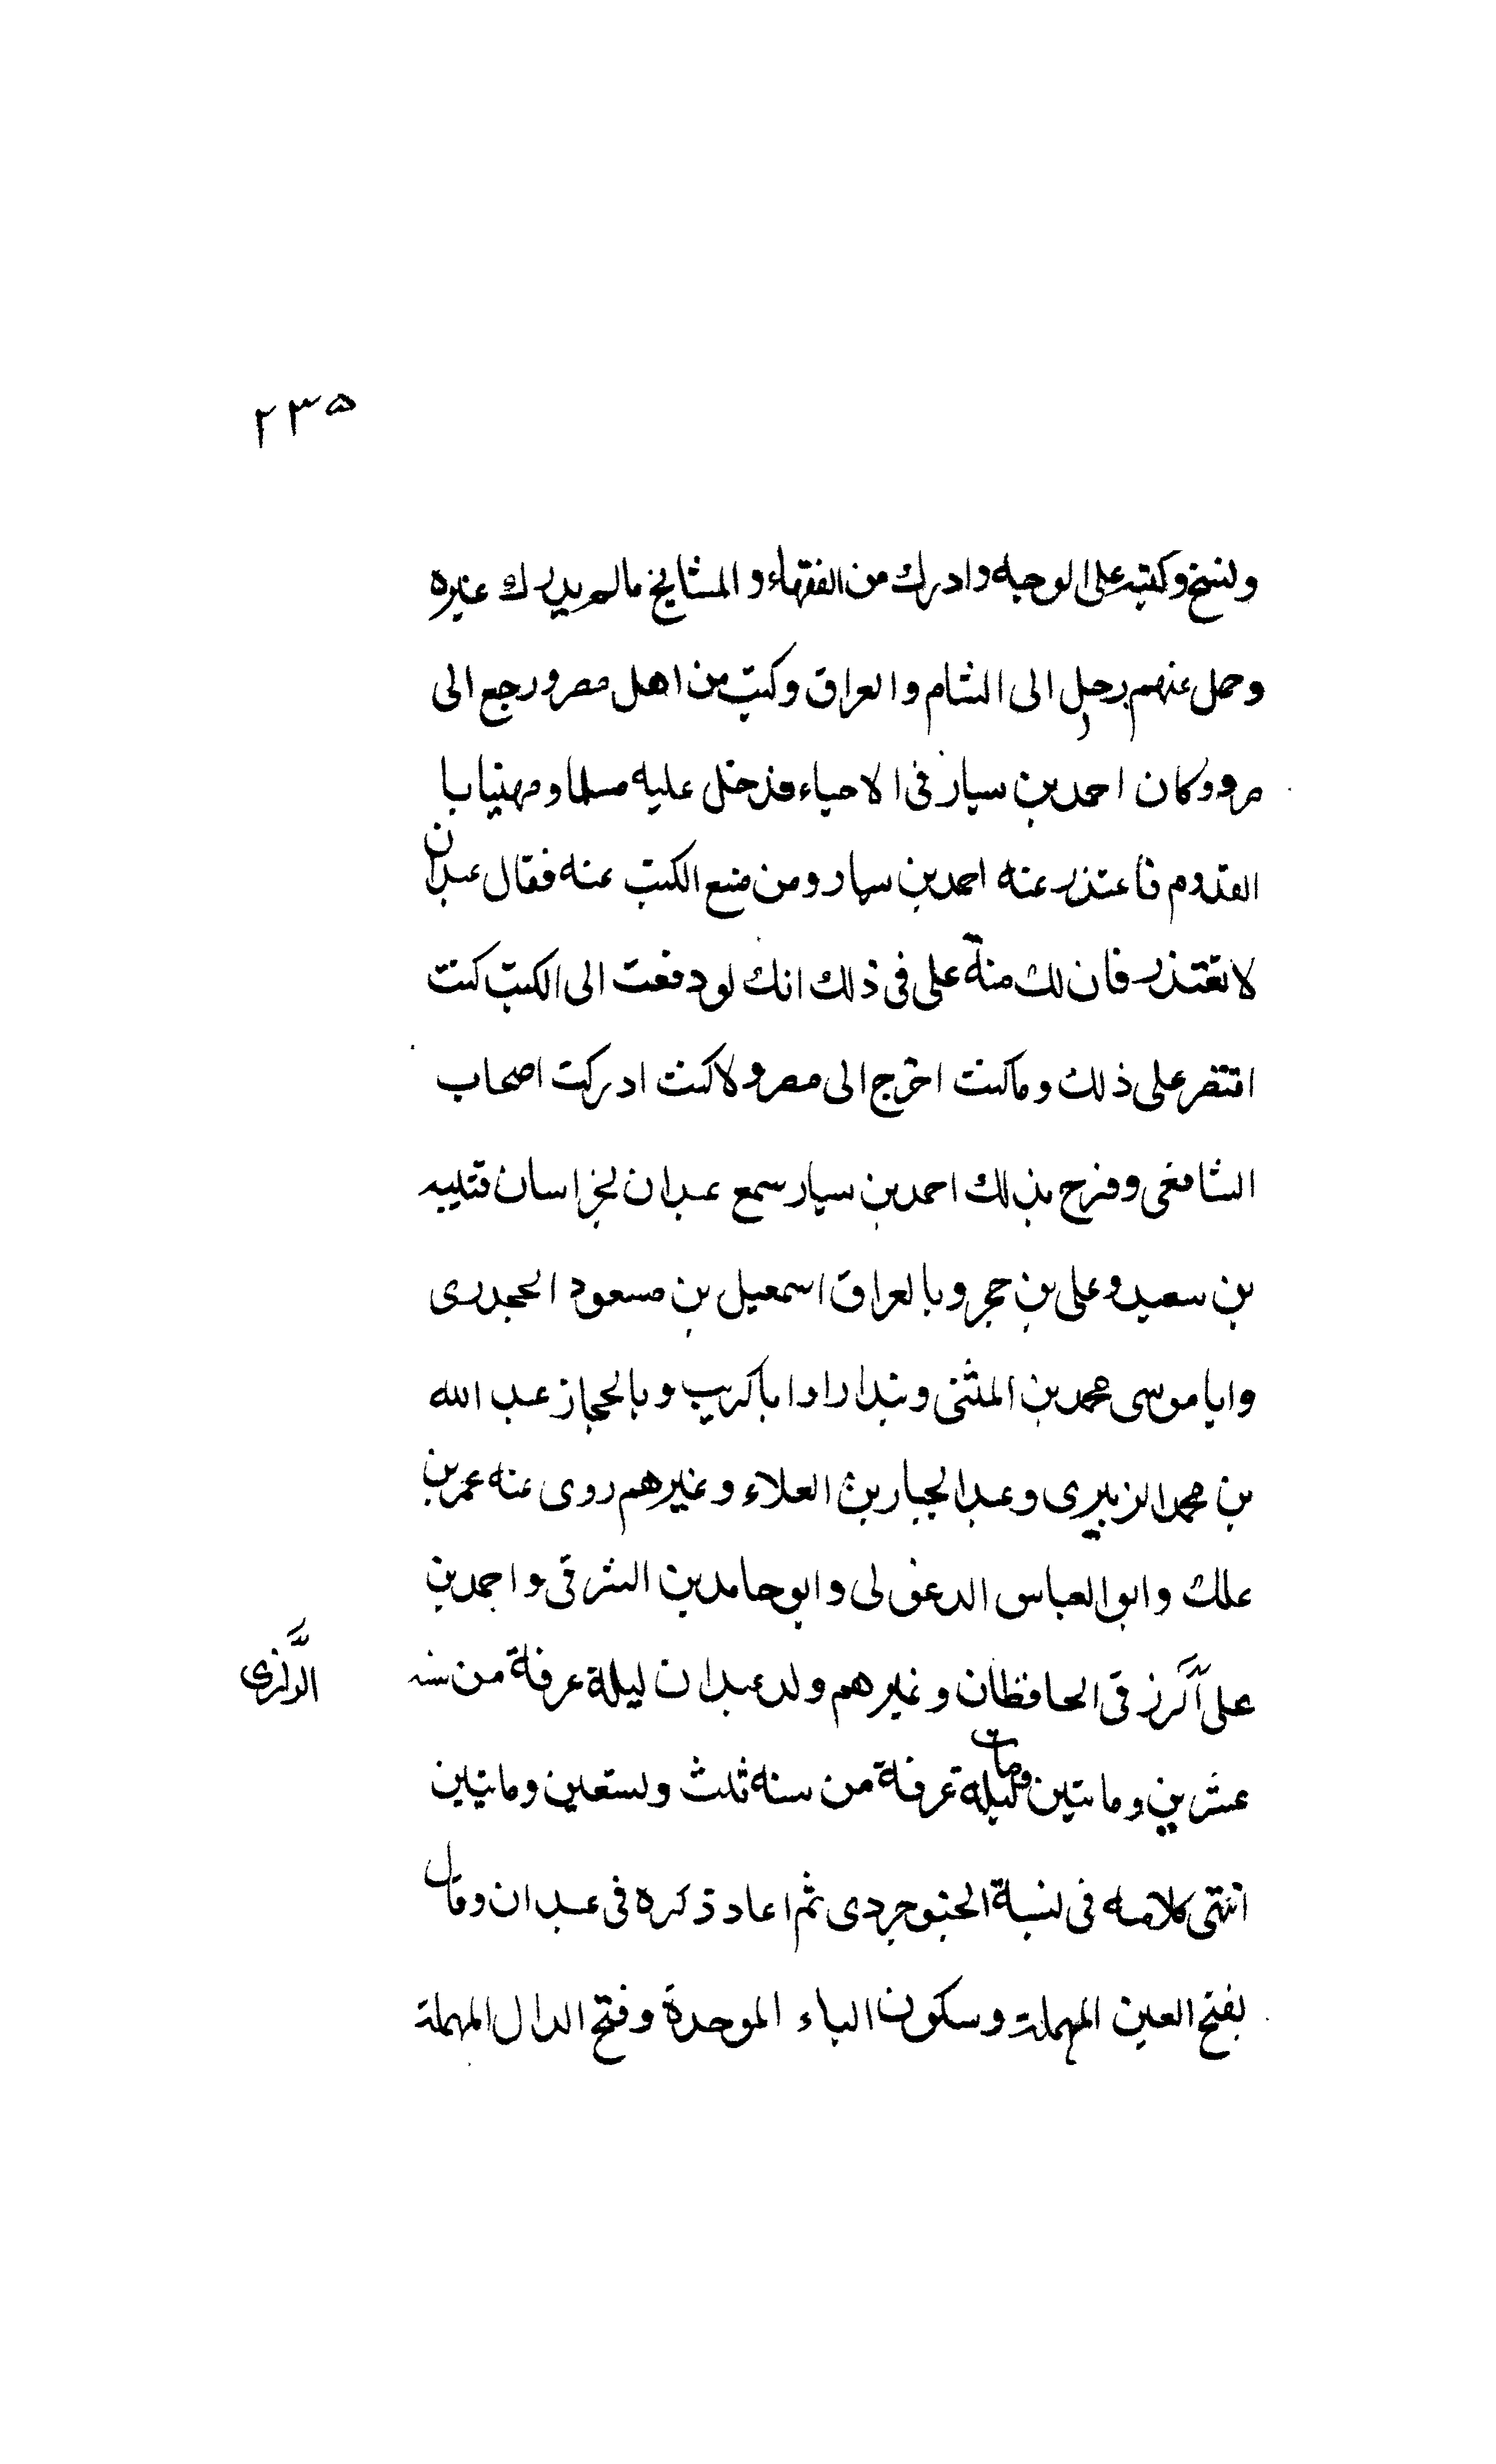 ٢٣٥
ونسخ وكتبه على الوجه وادرك من الفقهاء و المشايخ مالم يدرك غيره
وحمل عنهم رحل الى الشام والعراق وكتب من اهل مصر ورجع الى
مرو وكان احمد بن سيار فى الاحياء فدخل عليه مسلما ومهنيا با
القدوم فاعتذر عنه احمد بن سيار ومن منع الكتب عنه فقال عبدان
لا تعتذر فان لك منة على فى ذلك انك لو دفعت الى الكتب كنت
اقتصر على ذلك وما كنت اخرج الى مصر ولا كنت ادركت اصحاب
الشافعى وفرح بذلك احمد بن سيار سمع عبدان بخراسان قتيبه
بن سعيد وعلى بن حجر وبالعراق اسمعيل بن مسعود الجحدرى
وابا موسى محمد بن المثنى وبندارا وابا كريب وبالحجاز عبد الله
بن محمد الزبيرى وعبد الجبار بن العلاء وغيرهم روى عنه عمر بن
علك وابو العباس الدغولى وابو حامد بن الشرقى واحمد بن
على الرزقى الحافظان وغيرهم ولد عبدان ليلة عرفة من سنه
الرازى
عشرين وماتين ومات ليلة عرفة من سنه ثلث وتسعين وماتيين
انتهى كلامه فى نسبة الجنوجردى ثم اعاد ذكره فى عبدان وقال
بفتح العين المهملة وسكون الباء الموحدة وفتح الدال المهملة